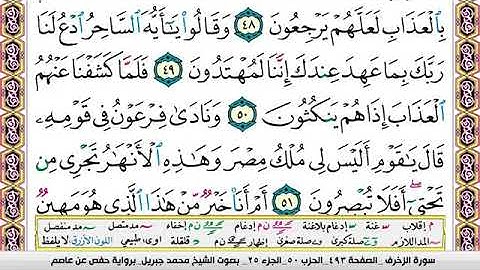 بِالْعَذَابِ لَعَلَّهُمْ يَرْجِعُونَ ٤٨ وَقَالُوا يَا أَيُّهَ السَّاحِرُ ادْعُ لَنَا
رَبَّكَ بِمَا عَهِدَ عِندَكَ إِنَّنَا لَمُهْتَدُونَ ٤٩ فَلَمَّا كَشَفْنَا عَنْهُمُ
الْعَذَابَ إِذَا هُمْ يَنكُثُونَ ٥٠ وَنَادَىٰ فِرْعَوْنُ فِي قَوْمِهِ
قَالَ يَا قَوْمِ أَلَيْسَ لِي مُلْكُ مِصْرَ وَهَٰذِهِ الْأَنْهَارُ تَجْرِي مِن
تَحْتِي أَفَلَا تُبْصِرُونَ ٥١ أَمْ أَنَا خَيْرٌ مِّنْ هَٰذَا الَّذِي هُوَ مَهِينٌ
م إقلاب غنة إدغام بلاغنة ن م إدغام ن م إخفاء مد متصل مد منفصل
مد اللازم صلة كبرى صلة صغرى إظهار ن م قلقلة اوى طبيعي اللون الأزرق لا يلفظ
سورة الزخرف _الصفحة ٤٩٣_ الحزب ٥٠_ الجزء ٢٥_ بصوت الشيخ محمد جبريل_ برواية حفص عن عاصم